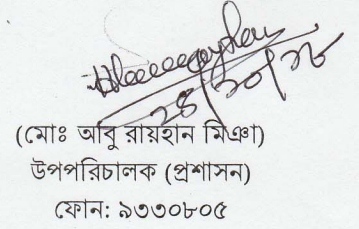 ২৪/১০/১৮
(মোঃ আবু রায়হান মিঞা)
উপপরিচালক (প্রশাসন)
ফোন: ৯৩৩০৮০৫